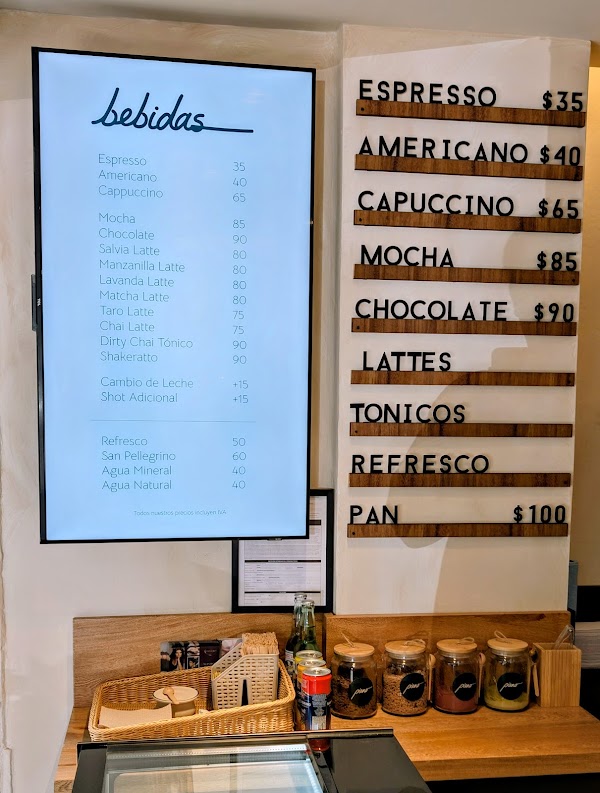 bebidas
Espresso 35
Americano 40
Cappuccino 65
Mocha 85
Chocolate 90
Salvia Latte 80
Manzanilla Latte 80
Lavanda Latte 80
Matcha Latte 80
Taro Latte 75
Chai Latte 75
Dirty Chai Tónico 90
Shakeratto 90
Cambio de Leche +15
Shot Adicional +15
Refresco 50
San Pellegrino 60
Agua Mineral 40
Agua Natural 40
Todos nuestros precios incluyen IVA
ESPRESSO $35
AMERICANO $40
CAPUCCINO $65
MOCHA $85
CHOCOLATE $90
LATTES
TONICOS
REFRESCO
PAN $100